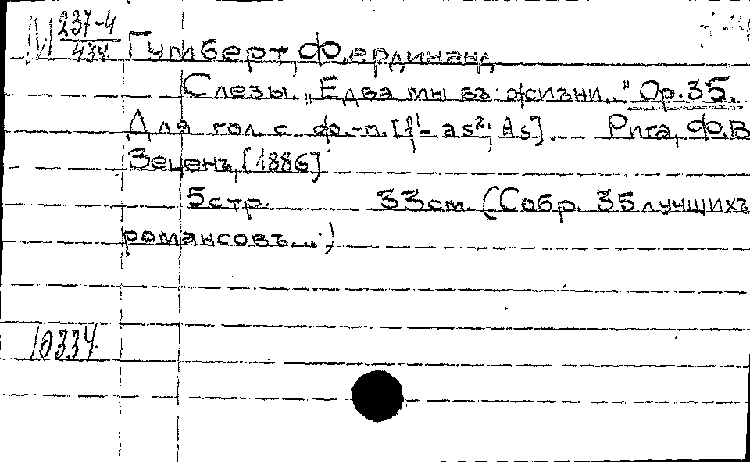 М 237-4
434
Гумберт, Фердинанд
Слезы. „Едва мы въ жизни..." Op.35.
Для гол. с ф.-п. [f¹- as²; As]. Рига, Ф.В
Зеценъ, [1886]
5стр. 33см (Собр. 35 лучшихъ
романсовъ...)
10334